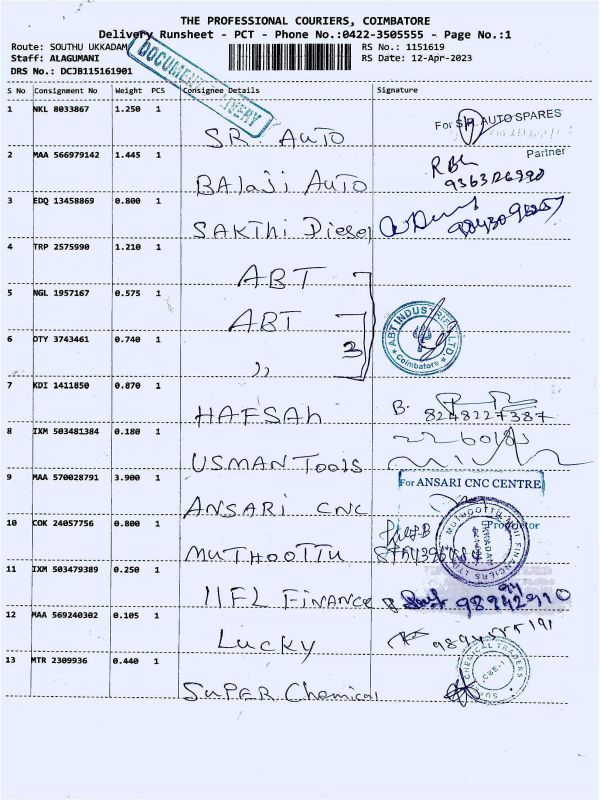 THE PROFESSIONAL COURIERS, COIMBATORE
Delivery Runsheet - PCT - Phone No.:0422-3505555 - Page No.:1
Route: SOUTHU UKKADAM RS No.: 1151619
Staff: ALAGUMANI RS Date: 12-Apr-2023
DRS No.: DCJB115161901
DOCUMENT DELIVERY
S No Consignment No Weight PCS Consignee Details Signature
1 NKL 8033867 1.250 1 SR. AUTO For S.R. AUTO SPARES
Partner
2 MAA 566979142 1.445 1 BALaji AUTO
3 EDQ 13458869 0.800 1 SAKTHi Diesel
4 TRP 2575990 1.210 1 ABT
5 NGL 1957167 0.575 1 ABT 3 ABT INDUSTRIES LTD. Coimbatore
6 OTY 3743461 0.740 1 ,,
7 KDI 1411850 0.870 1 HAFSAH B. 8248227387
8 IXM 503481384 0.180 1 USMAN TOOLS
9 MAA 570028791 3.900 1 ANSARI CNC For ANSARI CNC CENTRE
Proprietor
10 COK 24057756 0.800 1 MUTHOOTTU
11 IXM 503479389 0.250 1 IIFL FINANCE
12 MAA 569240302 0.105 1 LUCKY
13 MTR 2309936 0.440 1 SUPER Chemical CHEMICAL TRADERS CBE-1